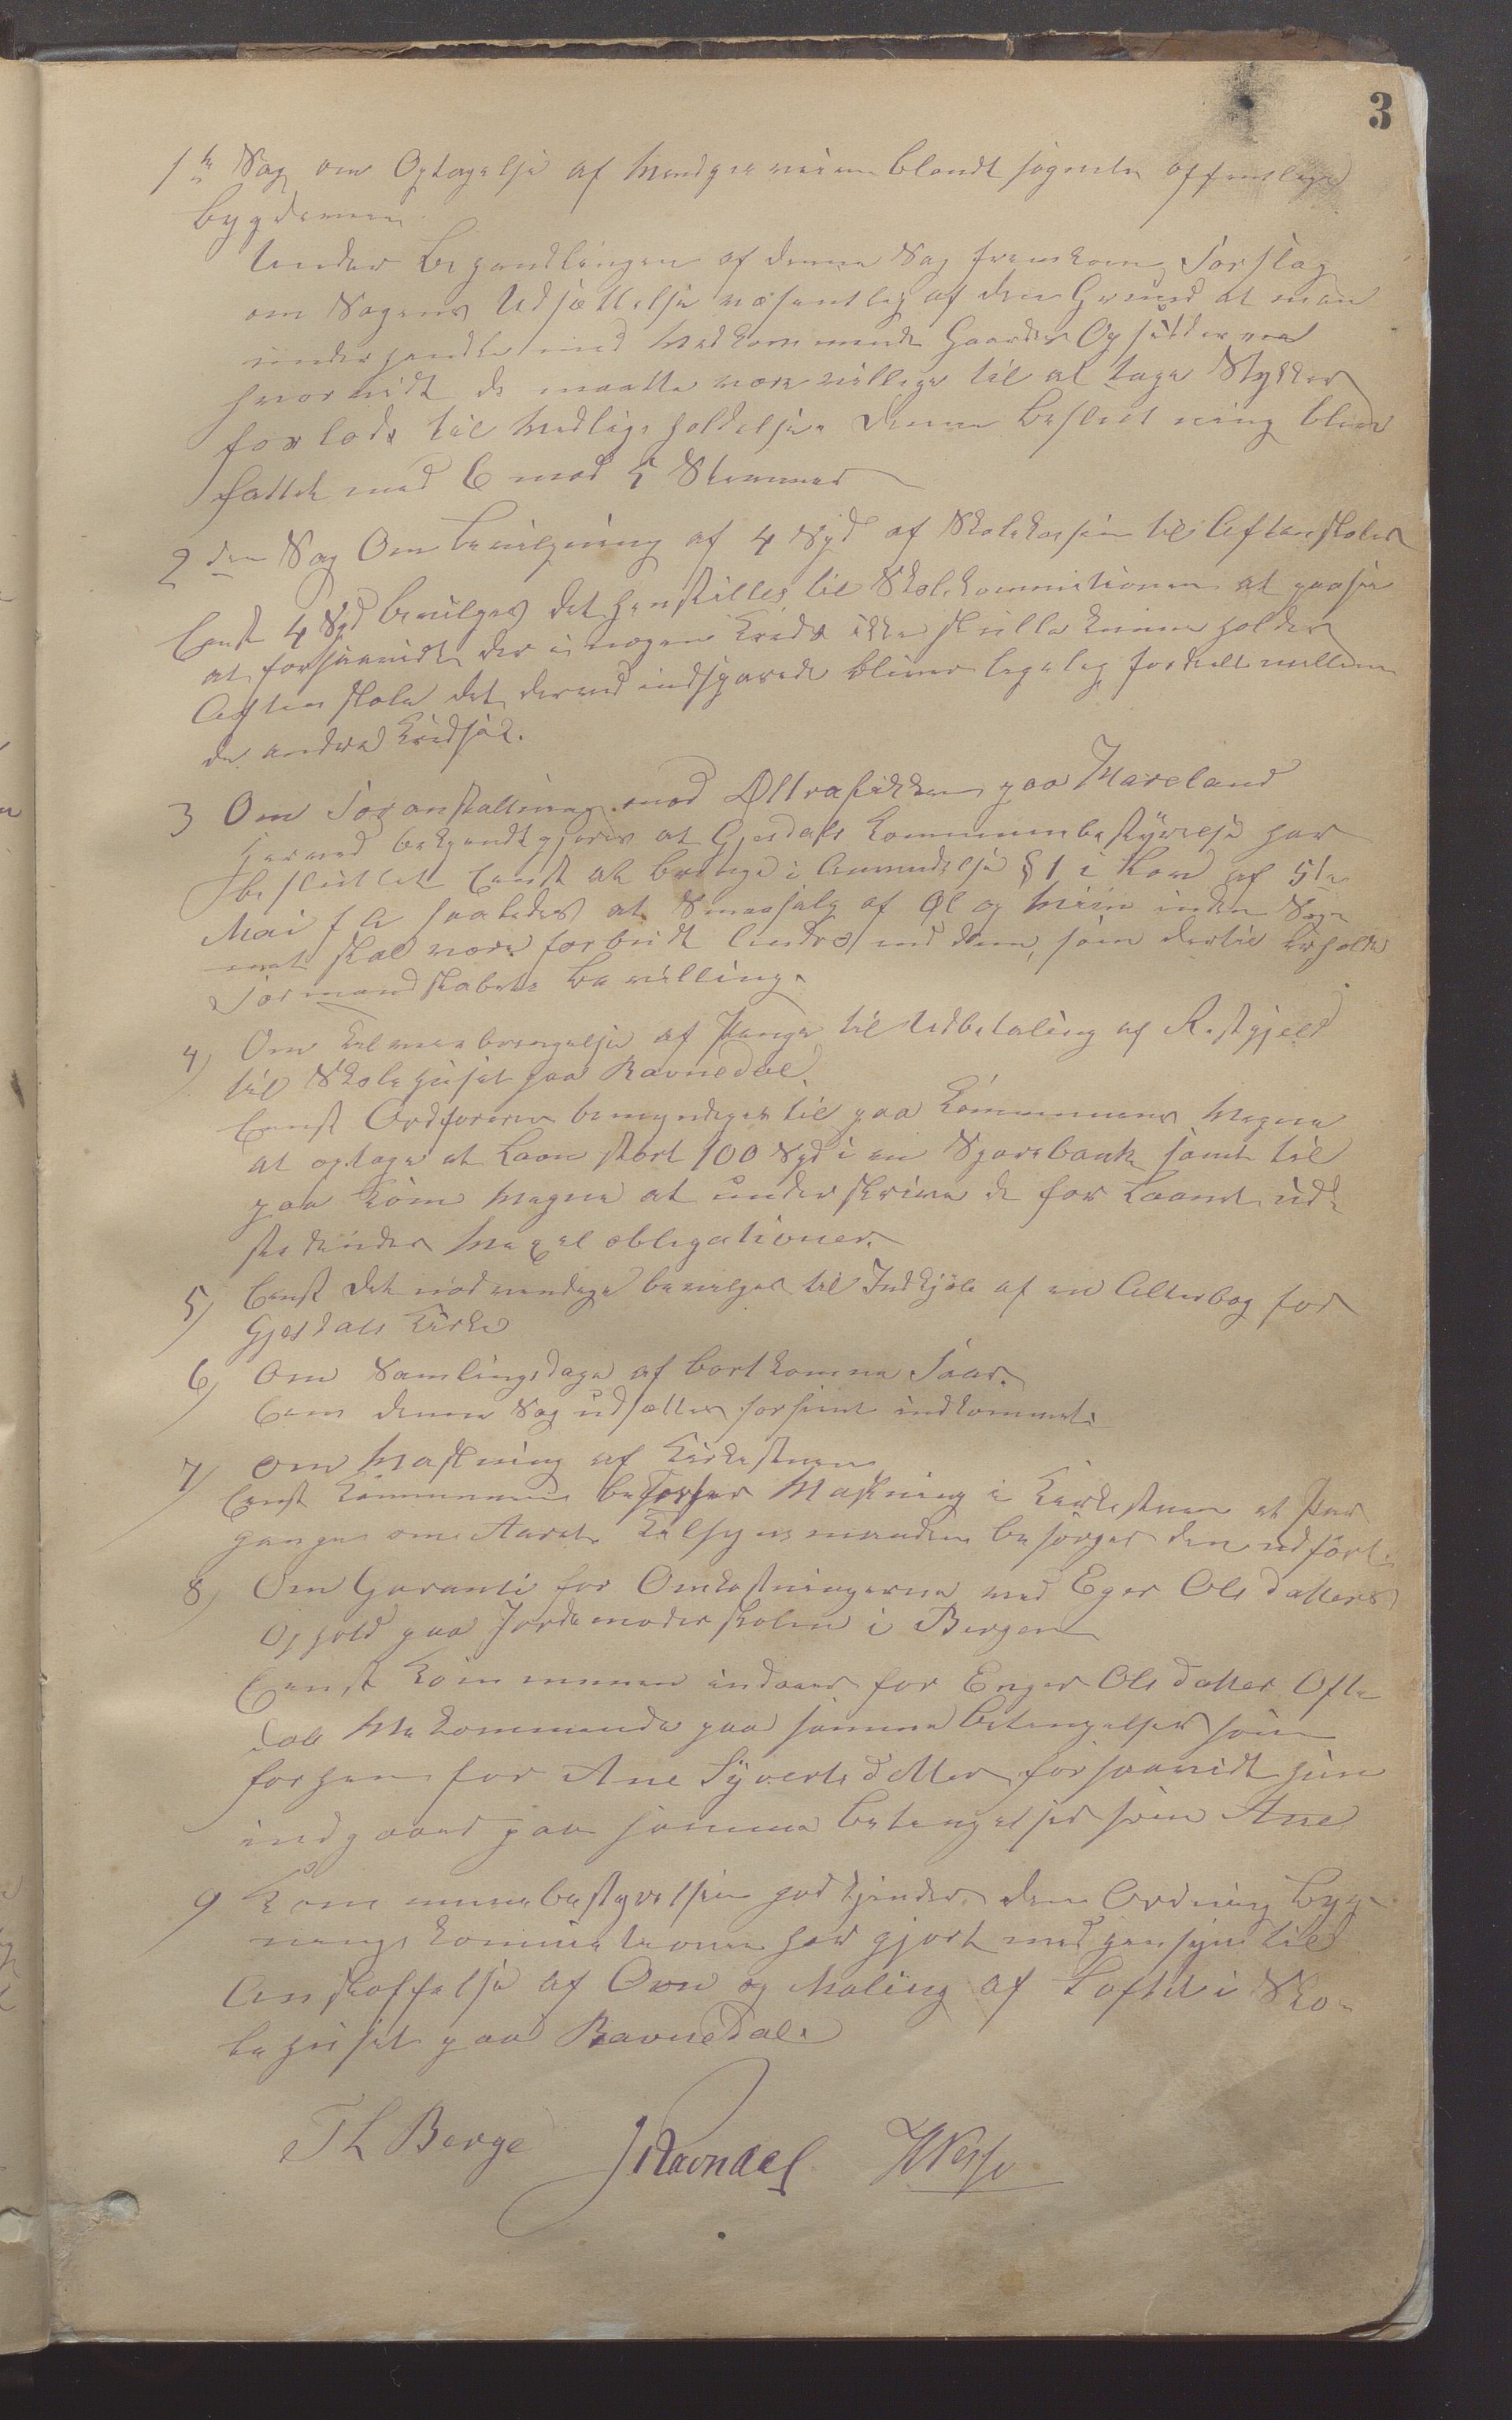 3
1te Sag om Optagelse af veien blandt sognets offentlige
bygdeveie
Under Behandlingen af denne Sag fremkom Forslag
om Sagens Udsættelse væsentlig af den Grund at man
underhandler med Vedkommende Gaardes Opsiddere
hvorvidt de maatte være villige til at tage Stykker
forlods til Vedligeholdelse. Denne Beslutning blev
fattet med 6 mod 5 Stemmer
2den Sag Om bevilgning af 4 Spd af Skolekassen til Aftenskoler
Enst 4 Spd bevilges det henstilles til Skolekommisionen at paase
at forsaavidt der i nogen Kreds ikke skulle kunne holdes
Aftenskole det derved indsparede bliver ligelig fordelt mellem
de andre Kredse.
3 Om Foranstaltning mod Øltrafikken paa Mæreland
Herved bekjendtgjøres at Gjesdals Kommunebestyrelse har
besluttet Enst at bringe i Anvendelse § 1 i Lov af 5te
Mai f A saaledes at Smaasalg af Øl og Viin inden Sog-
net skal være forbudt Andre end dem, som dertil erholde
Formandskabets Bevilling.
4) Om tilveiebringelse af Penge til Udbetaling af Restgjeld
til Skolehuset paa Ravnedal.
Enst Ordføreren bemyndiges til paa Kommunens Vegne
at optage et Laan stort 100 Spd i en Sparebank samt til
paa Kom Vegne at underskrive de for Laanet ud-
stedendes Vexelobligationer.
5) Enst det nødvendige bevilges til Indkjøb af en Alterbog for
Gjesdals Kirke
6) Om Samlingsdage af bortkomne Faar.
Eens denne Sag udsættes forsent indkommet.
7) Om Vaskning af Kirkestuen
Enst Kommunen besørger Vaskning i Kirkestuen et Par
gange om Aaret. Tilsynsmanden besørger den udført.
8) Om Garanti for Omkostningerne med Eger Olsdatters
Ophold paa Jordemoderskolen i Bergen
Enst Kommunen indestaar for Enger Olsdatter Ofte
dal Vedkommende paa samme betingelser som
forhen for Ane Syvertsdatter forsaavidt hun
indgaaer paa samme betingelser som Ane
9 Kommunebestyrelsen godkjender den Ordning Byg-
ningskommissionen har gjort med hensyn til
Anskaffelse af Ovn og Maling af Loftet i Sko-
lehuset paa Ravnedal.
Th Berge J Ravndal